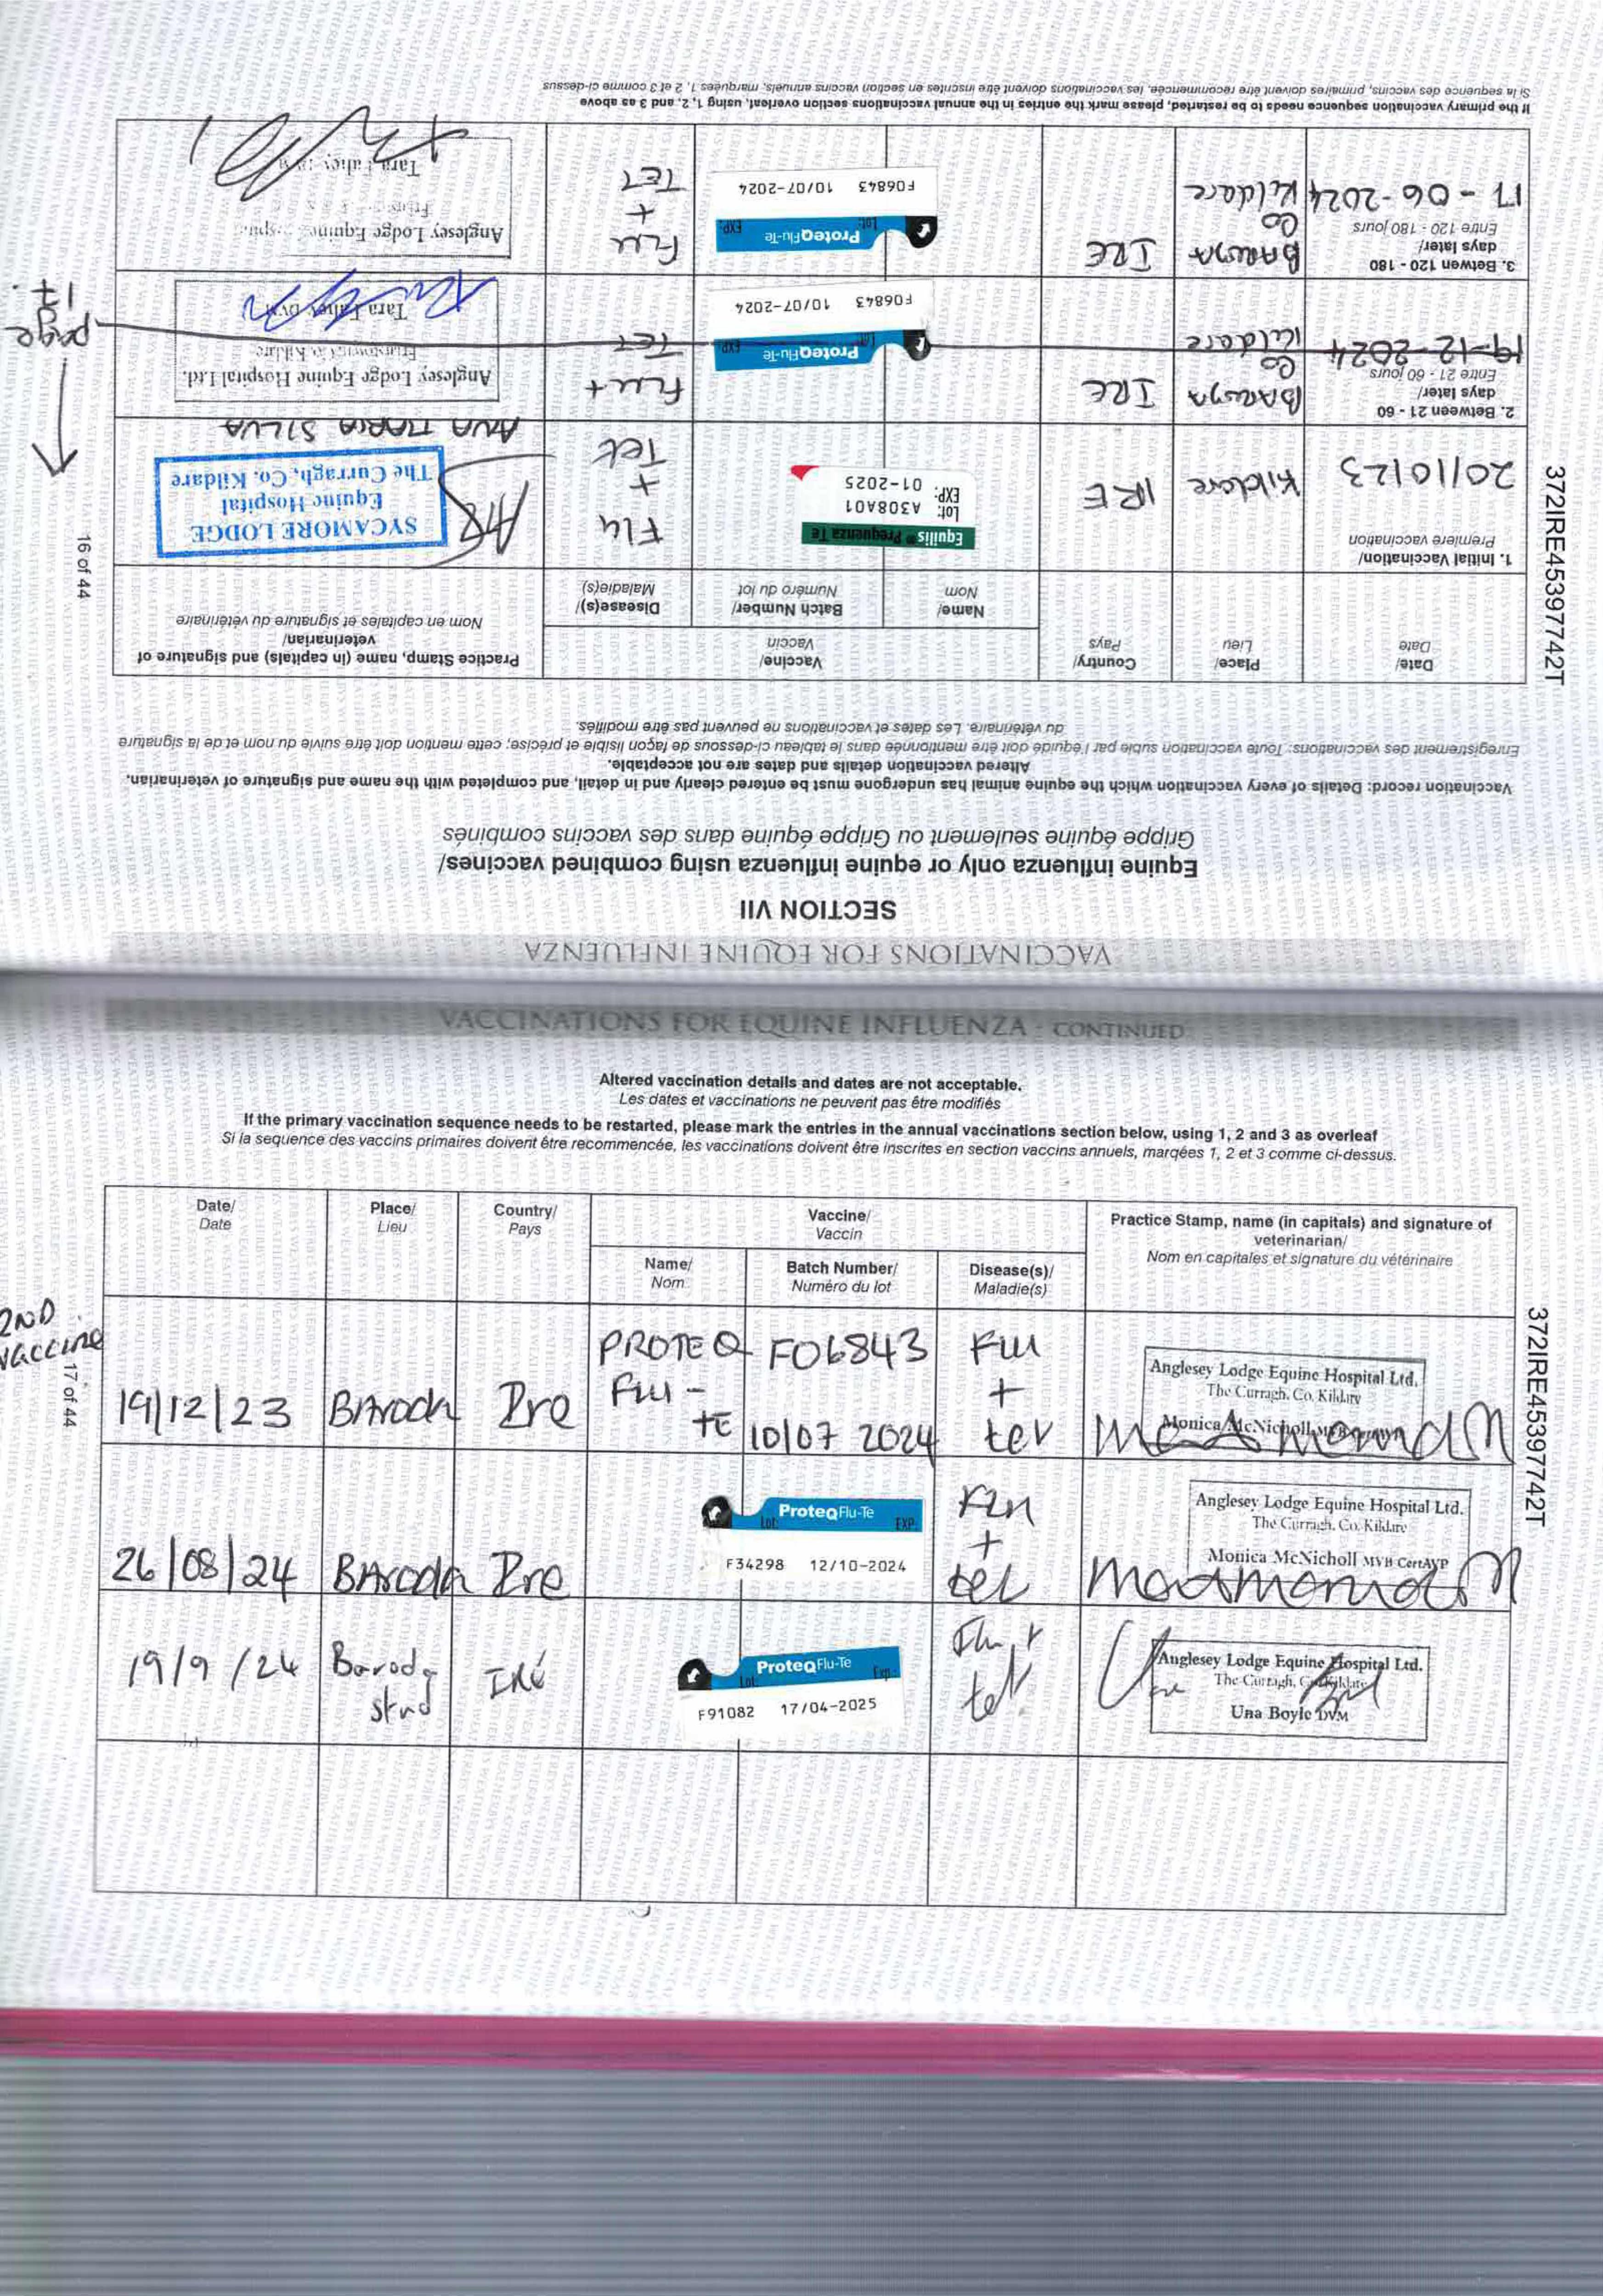 VACCINATIONS FOR EQUINE INFLUENZA
SECTION VII
Equine influenza only or equine influenza using combined vaccines/
Grippe équine seulement ou Grippe équine dans des vaccins combinés
Vaccination record: Details of every vaccination which the equine animal has undergone must be entered clearly and in detail, and completed with the name and signature of veterinarian.
Altered vaccination details and dates are not acceptable.
Enregistrement des vaccinations: Toute vaccination subie par l'équidé doit être mentionnée dans le tableau ci-dessous de façon lisible et précise; cette mention doit être suivie du nom et de la signature
du vétérinaire. Les dates et vaccinations ne peuvent pas être modifiés.
Date/
Date
Place/
Lieu
Country/
Pays
Vaccine/
Vaccin
Name/
Nom
Batch Number/
Numéro du lot
Disease(s)/
Maladie(s)
Practice Stamp, name (in capitals) and signature of
veterinarian/
Nom en capitales et signature du vétérinaire
1. Initial Vaccination/
Première vaccination
20/10/23
Kildare
IRE
Equilis® Prequenza Te
Lot: A308A01
EXP: 01-2025
Flu
+
Tet
SYCAMORE LODGE
Equine Hospital
The Curragh, Co. Kildare
ANA MARIA SILVA
2. Between 21 - 60
days later/
Entre 21 - 60 jours
19-12-2024
Co
Kildare
IRE
ProteqFlu-Te
EXP:
F06843 10/07-2024
Flu +
TET
Anglesey Lodge Equine Hospital Ltd.
Tara Fahey DVM
page
17.
3. Betwen 120 - 180
days later/
Entre 120 - 180 jours
17-06-2024
Co
Kildare
IRE
ProteqFlu-Te
Lot: EXP:
F06843 10/07-2024
Flu
+
TET
Anglesey Lodge Equine Hospital
Tara Fahey
If the primary vaccination sequence needs to be restarted, please mark the entries in the annual vaccinations section overleaf, using 1, 2, and 3 as above
Si la sequence des vaccins, primaires doivent être recommencée, les vaccinations doivent être inscrites en section vaccins annuels, marquées 1, 2 et 3 comme ci-dessus
16 of 44
372IRE45397742T
VACCINATIONS FOR EQUINE INFLUENZA - CONTINUED
Altered vaccination details and dates are not acceptable.
Les dates et vaccinations ne peuvent pas être modifiés
If the primary vaccination sequence needs to be restarted, please mark the entries in the annual vaccinations section below, using 1, 2 and 3 as overleaf
Si la sequence des vaccins primaires doivent être recommencée, les vaccinations doivent être inscrites en section vaccins annuels, marqées 1, 2 et 3 comme ci-dessus.
Date/
Date
Place/
Lieu
Country/
Pays
Vaccine/
Vaccin
Name/
Nom
Batch Number/
Numéro du lot
Disease(s)/
Maladie(s)
Practice Stamp, name (in capitals) and signature of
veterinarian/
Nom en capitales et signature du vétérinaire
2ND
vaccine
19/12/23
BAroda
Ire
PROTEQ
Flu -
TE
F06843
10/07 2024
Flu
+
tet
Anglesey Lodge Equine Hospital Ltd.
The Curragh, Co. Kildare
Monica McNicholl MVB CertAVP
26/08/24
BAroda
Ire
ProteqFlu-Te
Lot: EXP:
F34298 12/10-2024
Flu
+
tet
Anglesey Lodge Equine Hospital Ltd.
The Curragh, Co. Kildare
Monica McNicholl MVB CertAVP
19/9/24
Baroda
stud
IRE
ProteqFlu-Te
Lot: Exp:
F91082 17/04-2025
Flu +
tet
Anglesey Lodge Equine Hospital Ltd.
The Curragh, Co. Kildare
Una Boyle DVM
17 of 44
372IRE45397742T